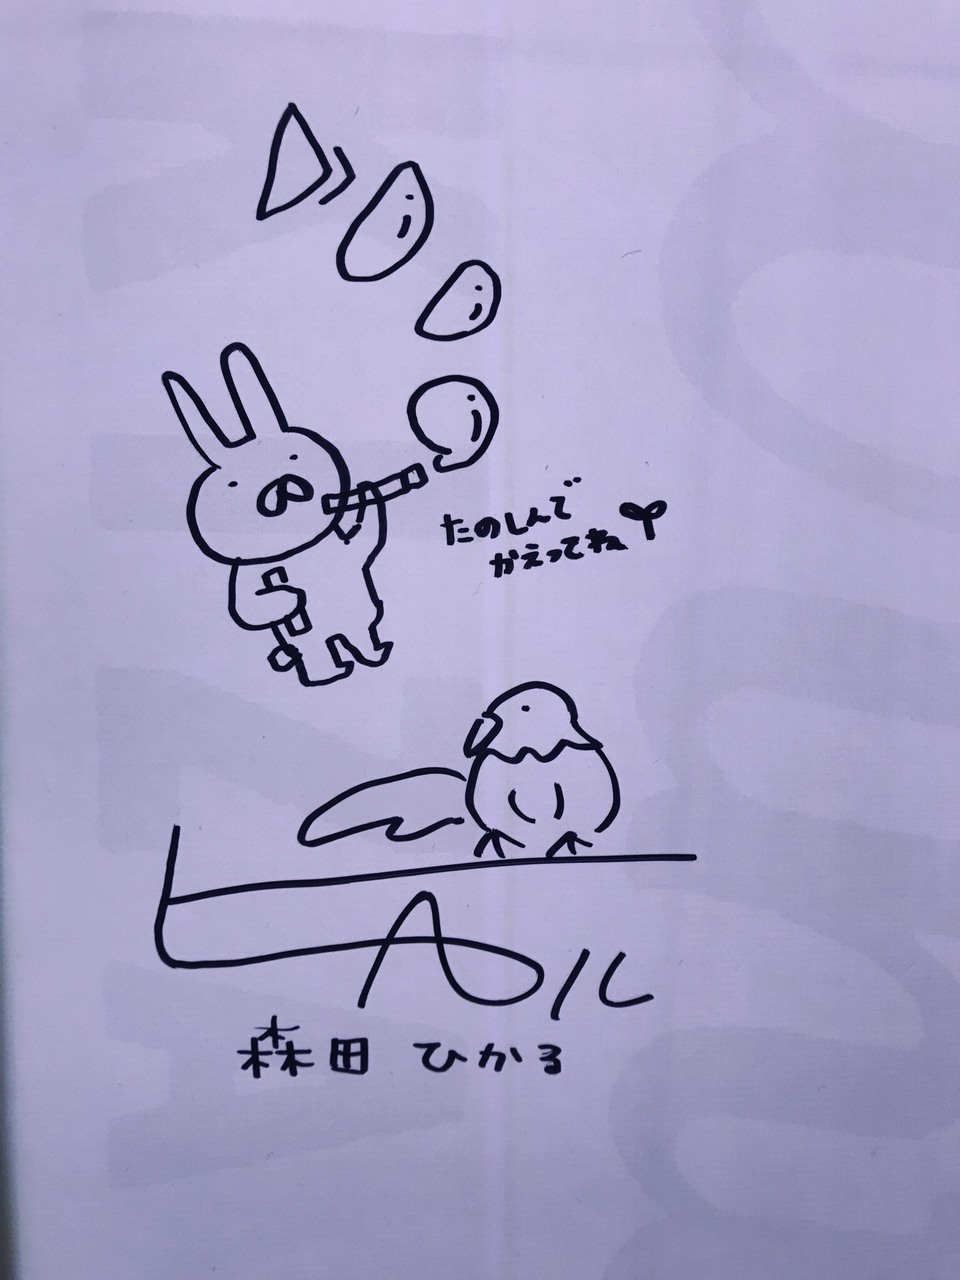 たのしんで
かえってね
森田 ひかる